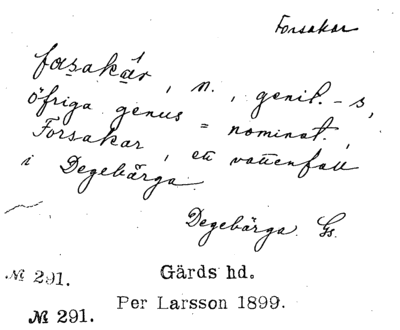 Forsakar
fasakár, n., genit. -s,
öfriga genus = nominat.
Forsakar, ett vattenfall
i Degebärga.
Degebärga. Gs.
№ 291. Gärds hd.
№ 291. Per Larsson 1899.